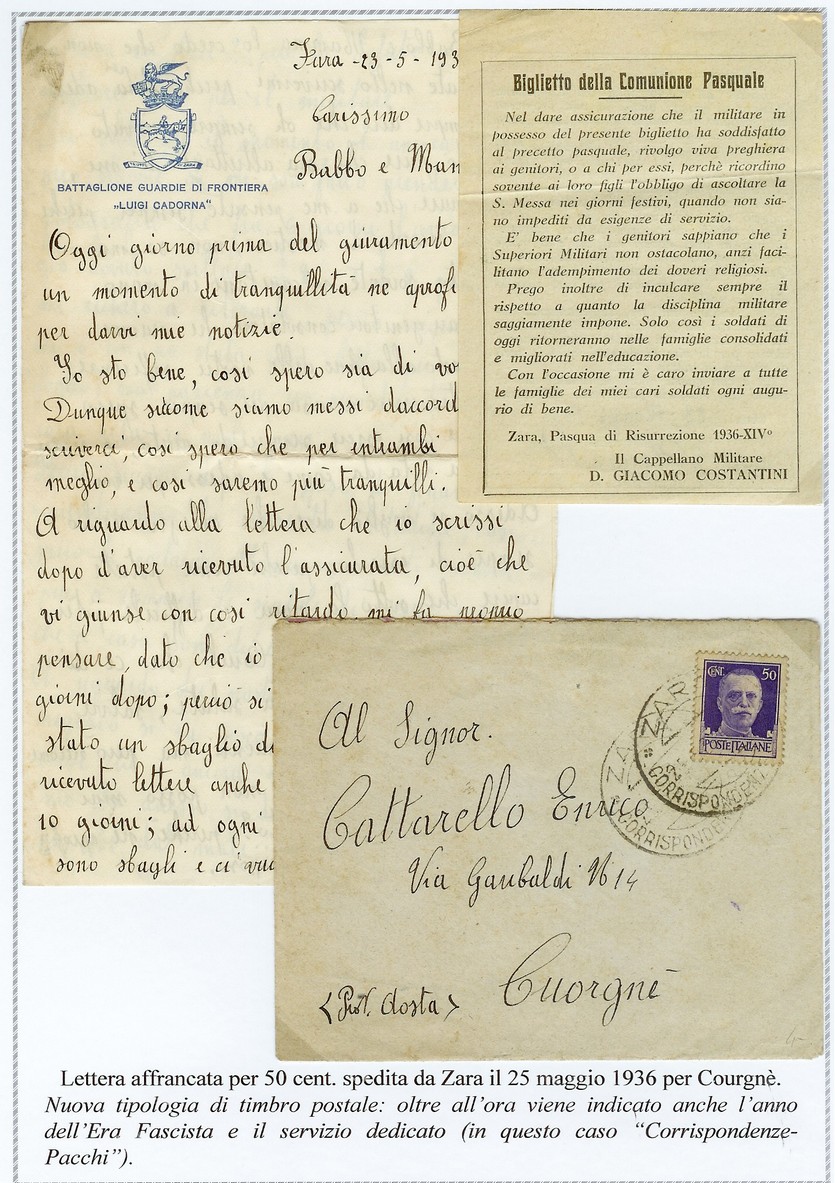 Zara - 23 - 5 - 193
Carissimo
Babbo e Mam
BATTAGLIONE GUARDIE DI FRONTIERA
„LUIGI CADORNA"
Oggi giorno prima del giuramento
un momento di tranquillità ne aprofi
per darvi mie notizie.
Io sto bene, così spero sia di vo
Dunque siccome siamo messi daccord
scriverci, così spero che per entrambi
meglio, e così saremo più tranquilli.
A riguardo alla lettera che io scrissi
dopo d'aver ricevuto l'assicurata, cioè che
vi giunse con così ritardo, mi fa proprio
pensare, dato che io
giorni dopo; perciò si
stato un sbaglio d
ricevuto lettere anche
10 giorni; ad ogni
sono sbagli e ci vuo
Biglietto della Comunione Pasquale
Nel dare assicurazione che il militare in
possesso del presente biglietto ha soddisfatto
al precetto pasquale, rivolgo viva preghiera
ai genitori, o a chi per essi, perchè ricordino
sovente ai loro figli l'obbligo di ascoltare la
S. Messa nei giorni festivi, quando non sia-
no impediti da esigenze di servizio.
E' bene che i genitori sappiano che i
Superiori Militari non ostacolano, anzi faci-
litano l'adempimento dei doveri religiosi.
Prego inoltre di inculcare sempre il
rispetto a quanto la disciplina militare
saggiamente impone. Solo così i soldati di
oggi ritorneranno nelle famiglie consolidati
e migliorati nell'educazione.
Con l'occasione mi è caro inviare a tutte
le famiglie dei miei cari soldati ogni augu-
rio di bene.
Zara, Pasqua di Risurrezione 1936-XIVº
Il Cappellano Militare
D. GIACOMO COSTANTINI
CENT. 50
POSTE ITALIANE
ZAR
CORRISPONDENZ
ZA
CORRISPONDE
Al Signor.
Cattarello Enrico
Via Garibaldi N 14
Cuorgnè
(Prov. Aosta)
Lettera affrancata per 50 cent. spedita da Zara il 25 maggio 1936 per Courgnè.
Nuova tipologia di timbro postale: oltre all'ora viene indicato anche l'anno
dell'Era Fascista e il servizio dedicato (in questo caso “Corrispondenze-
Pacchi”).